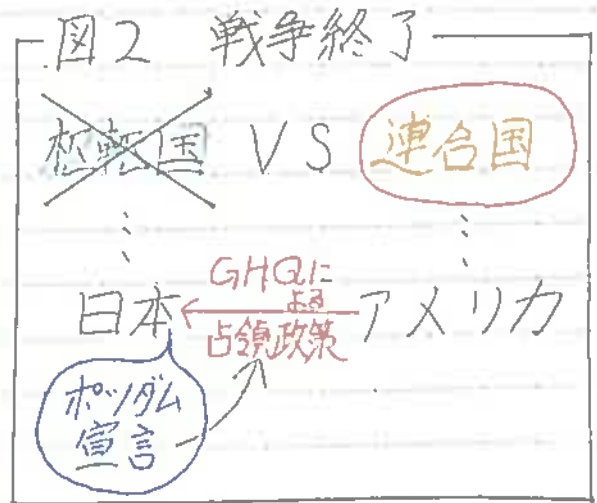 図2 戦争終了
枢軸国 VS 連合国
⋮ ⋮
日本 GHQによる占領政策 アメリカ
ポツダム
宣言